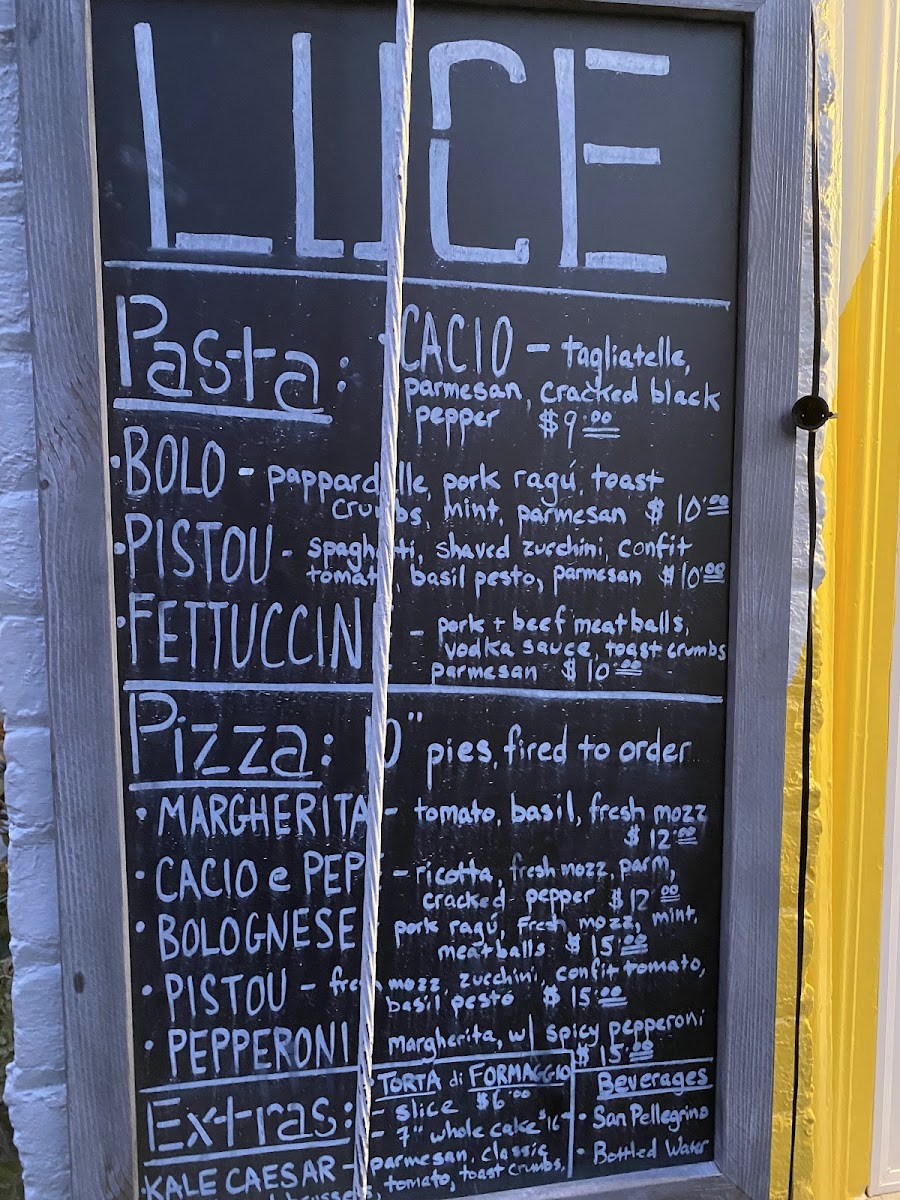 LUCE
Pasta: CACIO - tagliatelle,
parmesan, cracked black
pepper $9.00
·BOLO - pappardelle, pork ragú, toast
crumbs, mint, parmesan $10.00
·PISTOU - spaghetti, shaved zucchini, confit
tomato, basil pesto, parmesan $10.00
·FETTUCCIN - pork + beef meatballs,
vodka sauce, toast crumbs
parmesan $10.00
Pizza: 10" pies, fired to order
·MARGHERITA - tomato, basil, fresh mozz
$12.00
·CACIO e PEPE - ricotta, fresh mozz, parm,
cracked pepper $12.00
·BOLOGNESE pork ragú, fresh mozz, mint,
meatballs $15.00
·PISTOU - fresh mozz, zucchini, confit tomato,
basil pesto $15.00
·PEPPERONI margherita, w/ spicy pepperoni
$15.00
TORTA di FORMAGGIO
- slice $6.00
- 7" whole cake $16-
Beverages
· San Pellegrino
· Bottled Water
Extras:
·KALE CAESAR - parmesan, classic
tomato, toast crumbs,